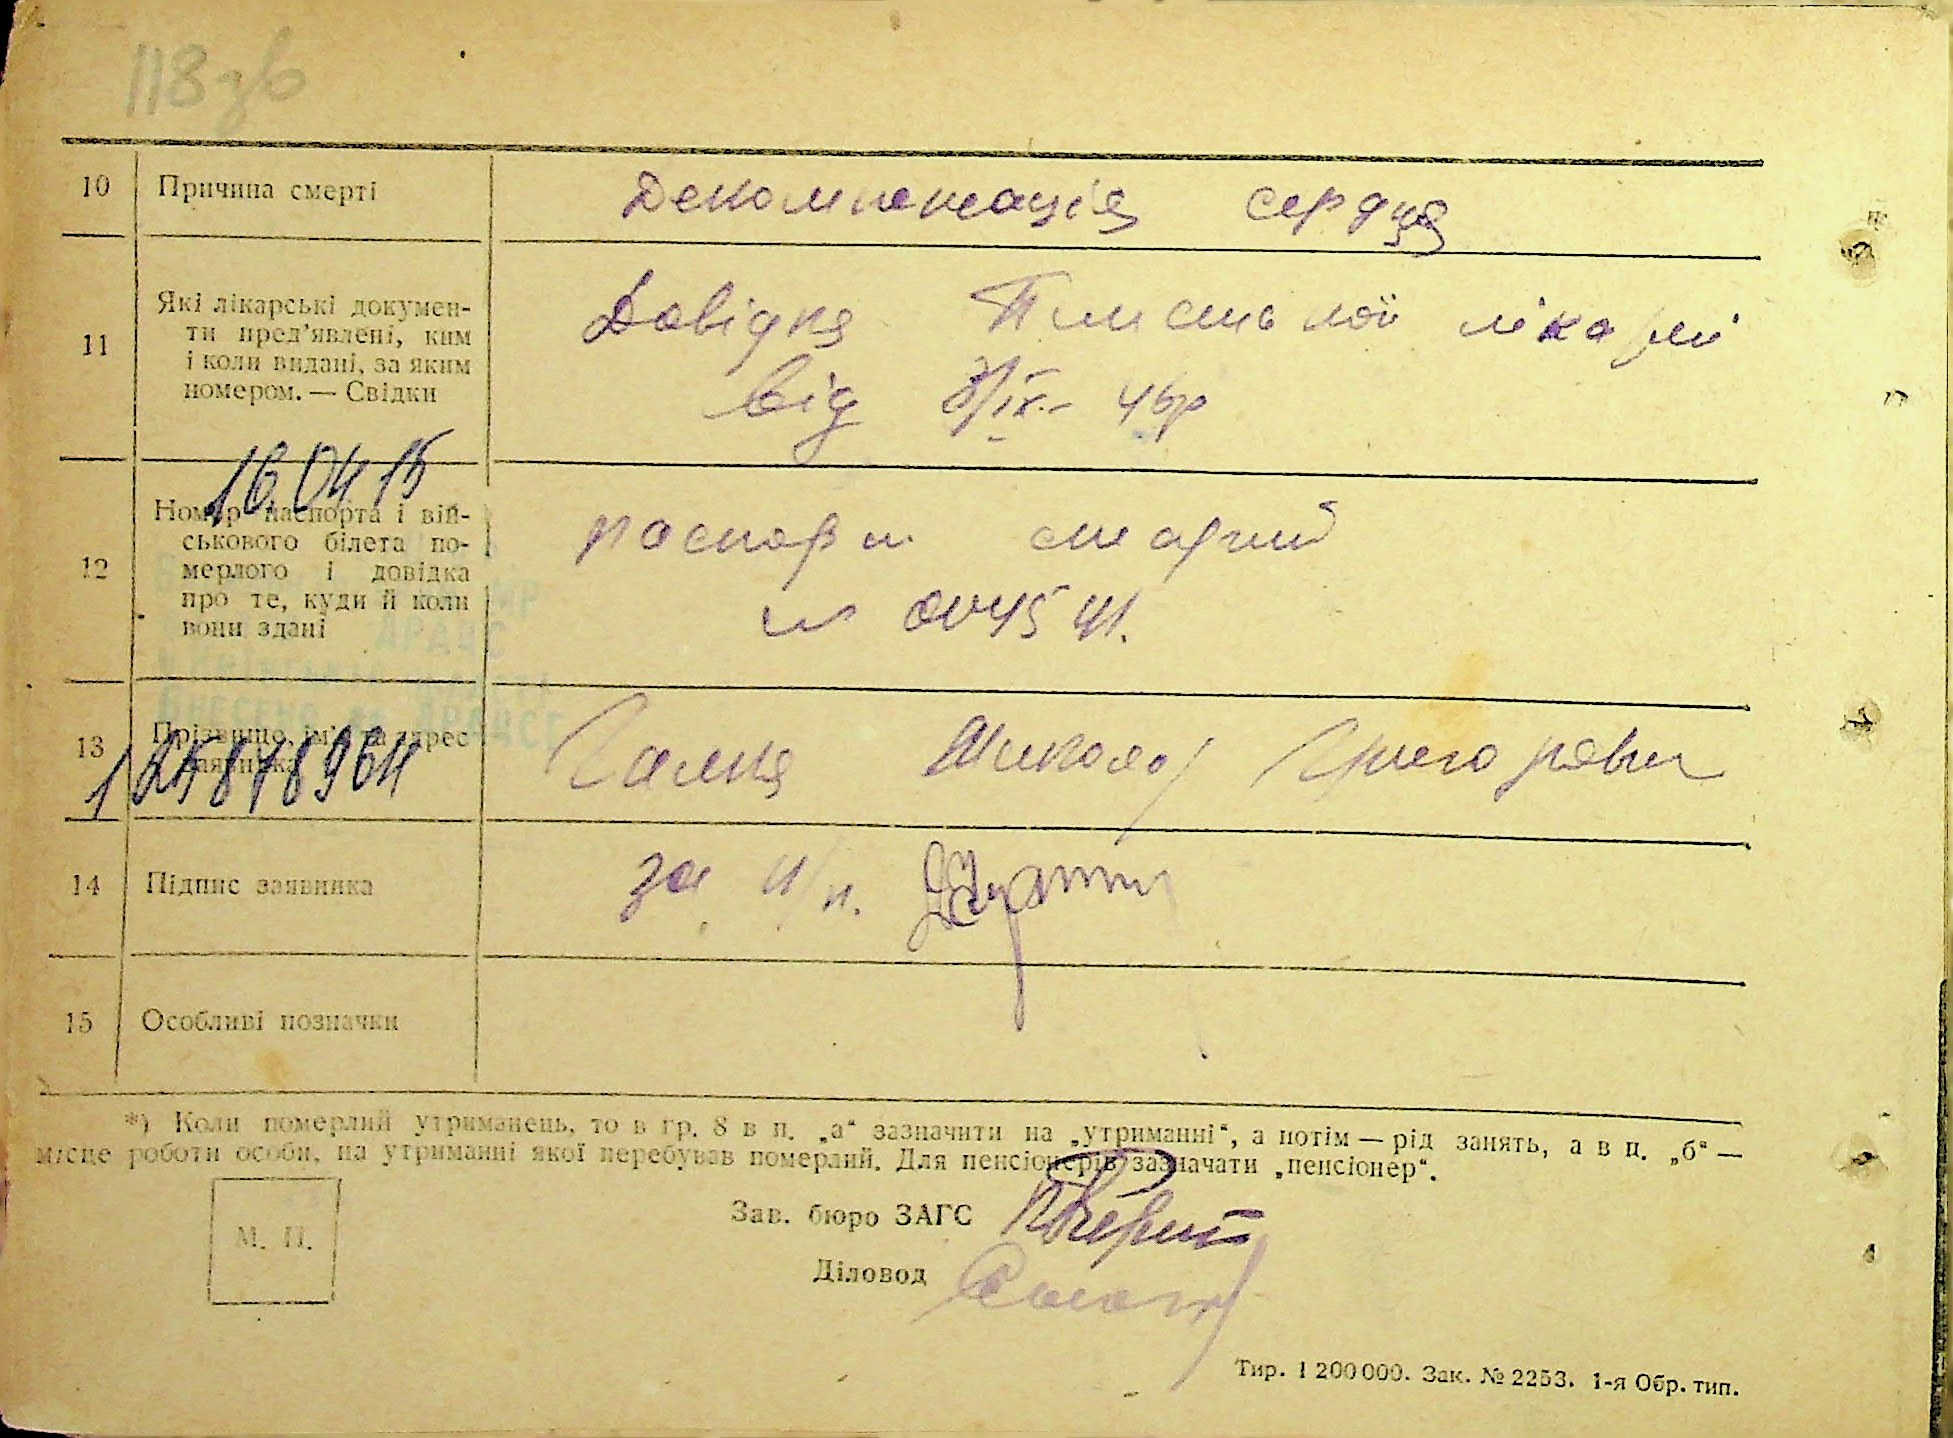 118зв
10 Причина смерті Декомпенсація серця
11 Які лікарські докумен-
ти пред’явлені, ким
і коли видані, за яким
номером. — Свідки
Довідка лікарні
від 3/ІХ- 46р
16.04.15
12 Номер паспорта і вій-
ськового білета по-
мерлого і довідка
про те, куди й коли
вони здані
паспорт
004541.
ДРАЦС
13 Прізвище, ім’я та адрес
заявника
Галка Микола Григорович
14 Підпис заявника за н/п.
15 Особливі позначки
*) Коли померлий утриманець, то в гр. 8 в п. „а“ зазначити на „утриманні“, а потім — рід занять, а в п. „б“ —
місце роботи особи, на утриманні якої перебував померлий. Для пенсіонерів зазначати „пенсіонер“.
М. П.
Зав. бюро ЗАГС
Діловод
Тир. 1 200 000. Зак. № 2253. 1-я Обр. тип.